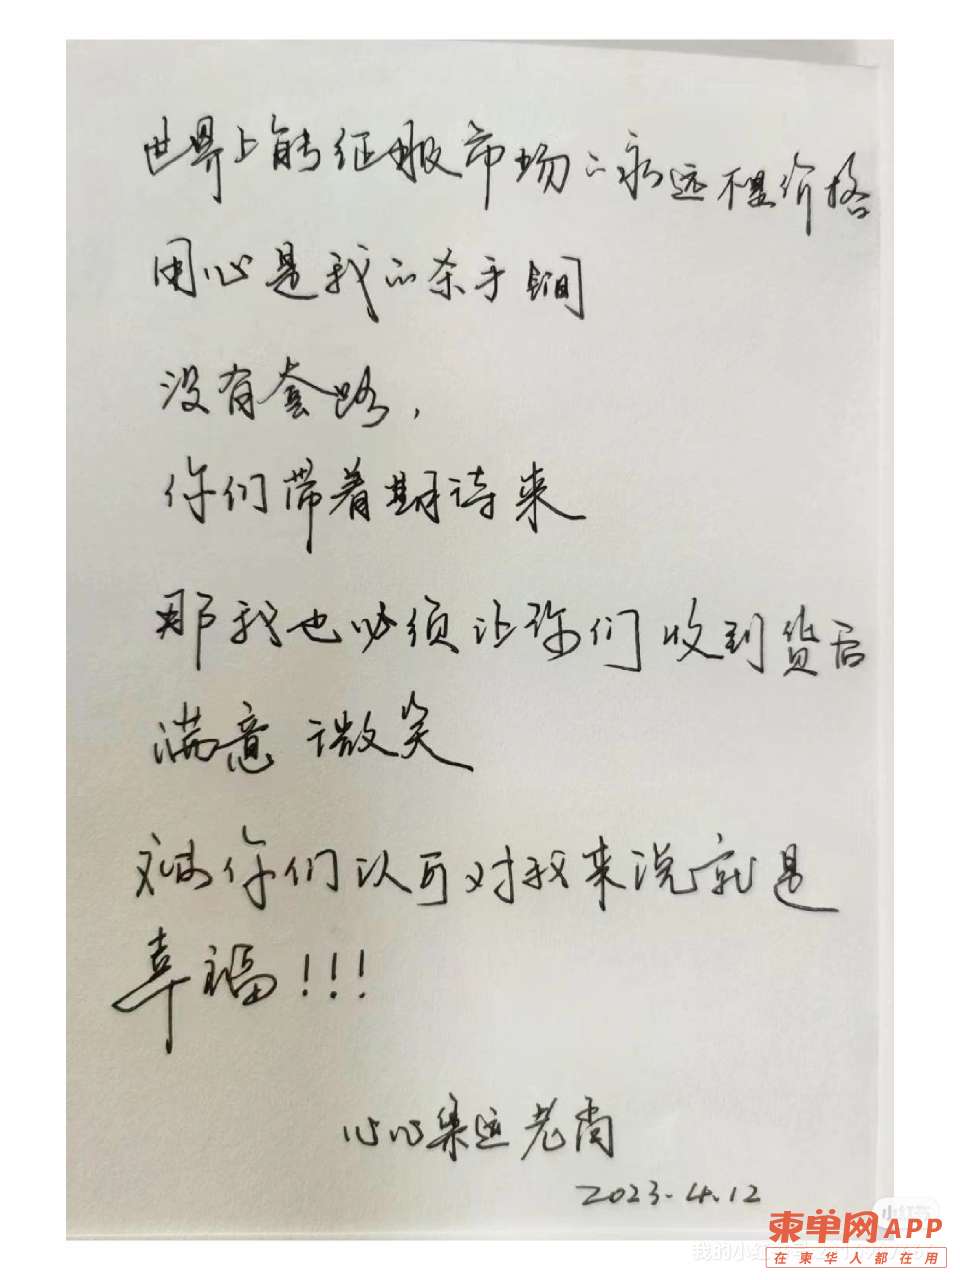 世界上能征服市场的永远不是价格
用心是我的杀手锏
没有套路，
你们带着期待来
那我也必须让你们收到货后
满意 微笑
你们认可对我来说就是
幸福！！！
心心集运老尚
2023.4.12
小红书
我的小红书
柬单网APP
在柬华人都在用